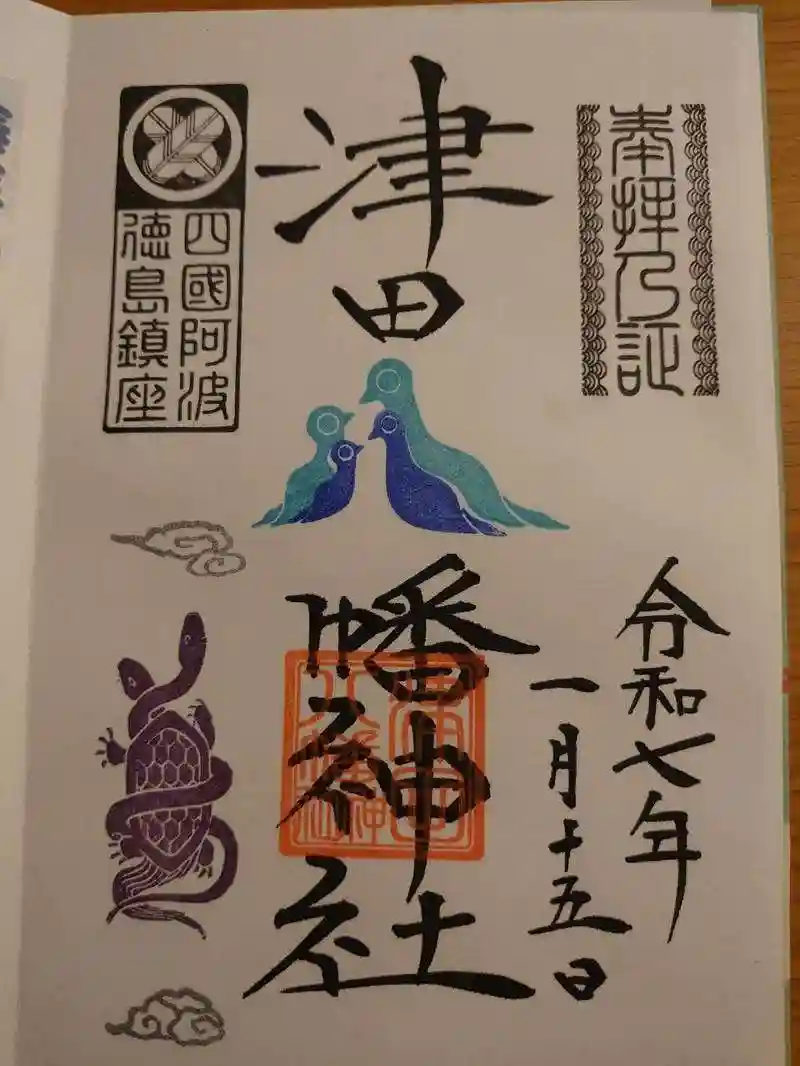 奉拝乃証
令和七年
一月十五日
津田
幡神社
津田
八幡
神社
四國阿波
徳島鎮座